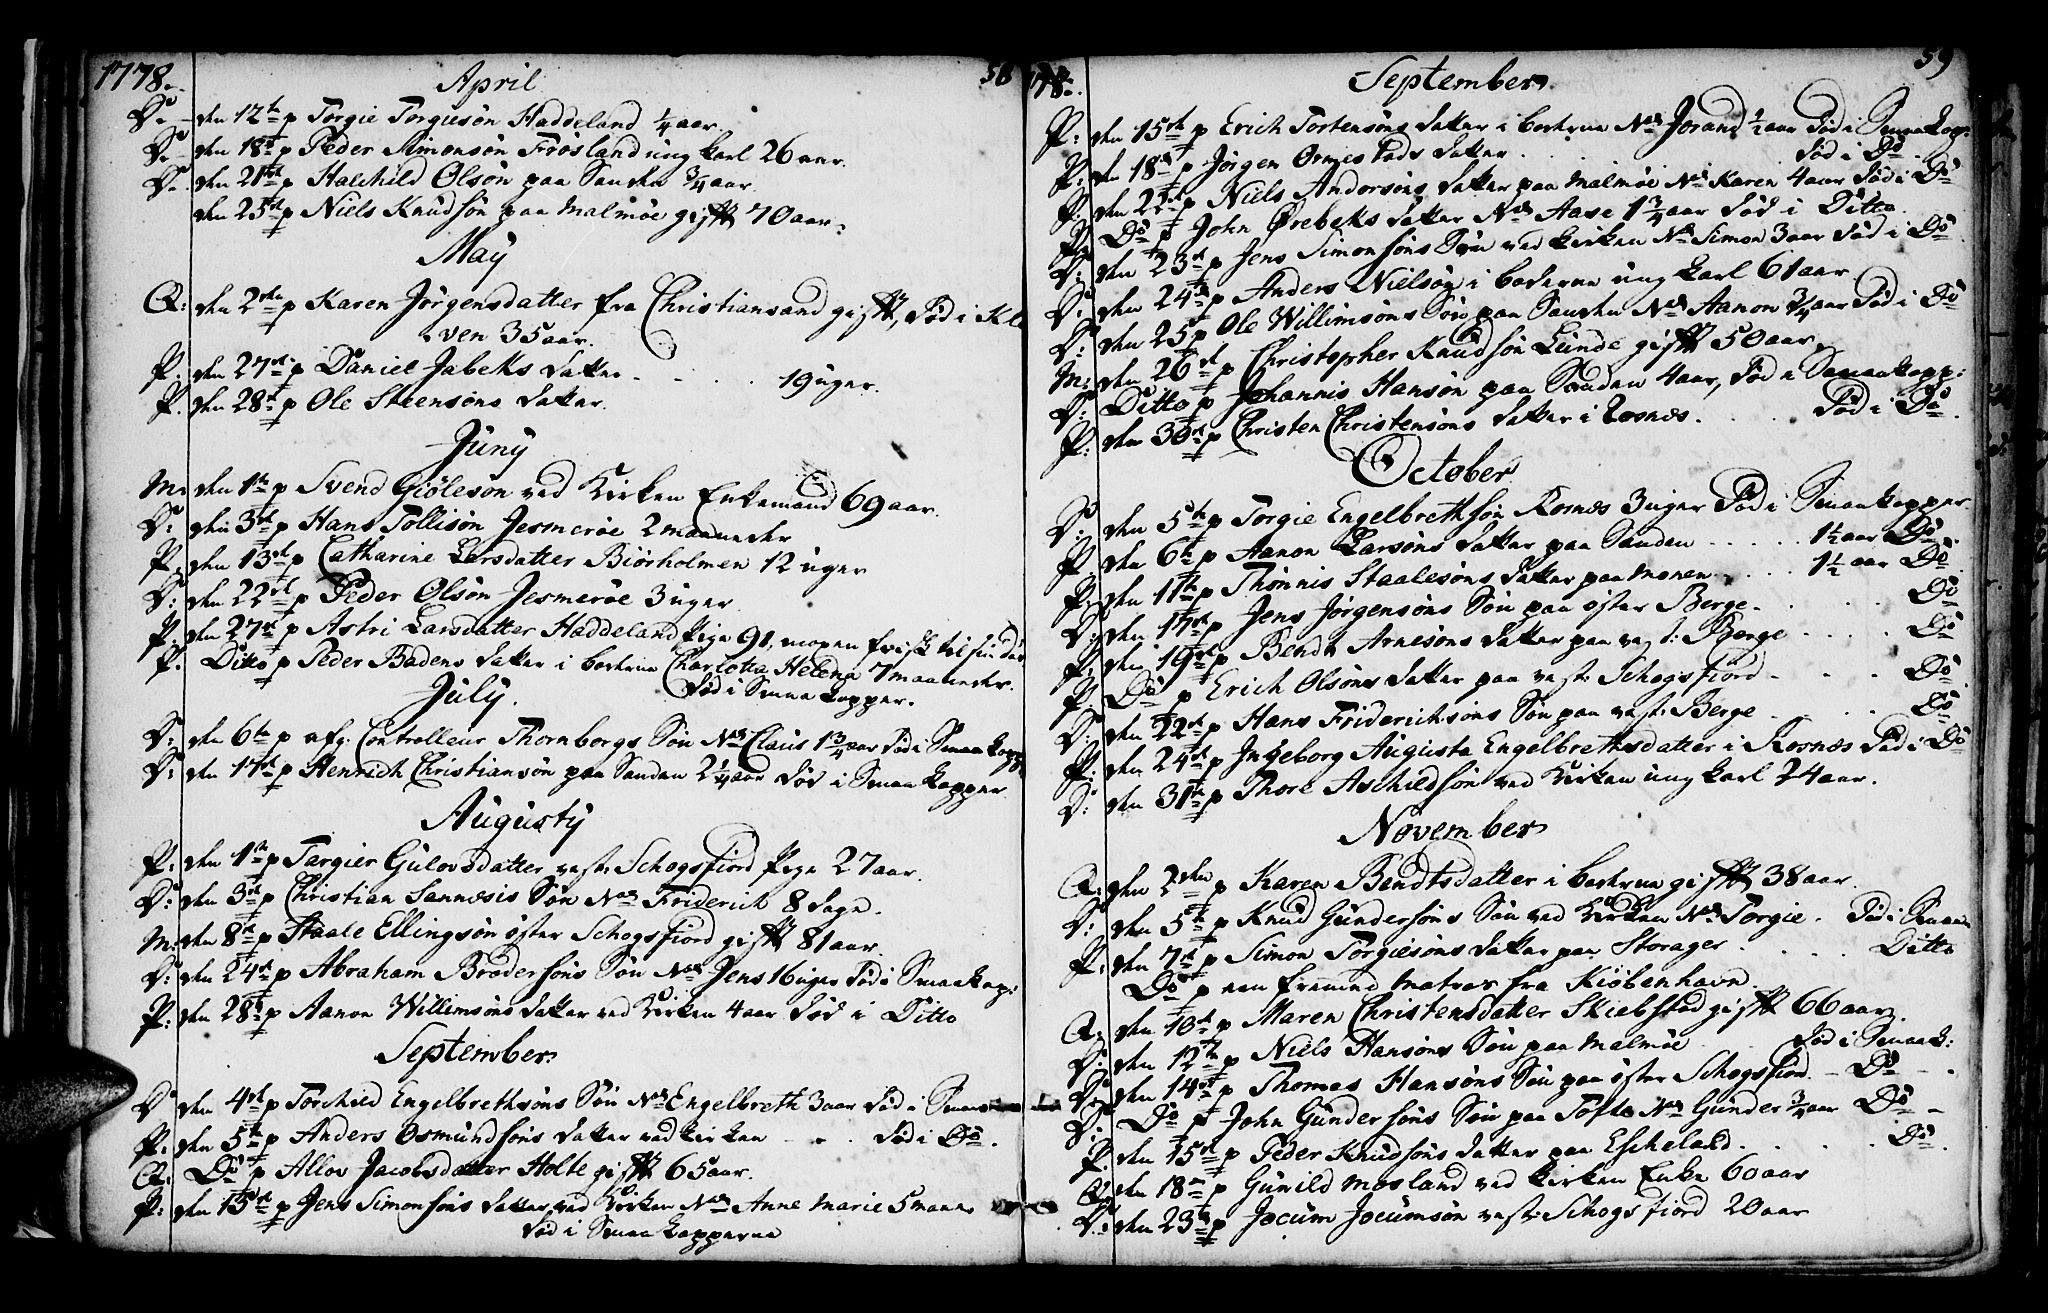 1778. April 58
S. den 12te p Torgie Torgiesøn Haddeland ¼ aar.
S. den 18de p Peder Simonsøn Frøsland ung karl 26 aar.
S. den 21de p Halchild Olsøn paa Sanden ¾ aar.
den 25de p Niels Knudsøn paa Malmøe gift 70 aar.
May
Q: den 2den p Karen Jørgensdatter fra Christiansand gift, død i Kle
ven 35 aar.
P. den 27de p Daniel Jabeks datter . . . . 19 uger.
P. den 28de p Ole Steensøns datter.
Juny
M: den 1te p Svend Giölesøn ved Kirken Enkemand 69 aar.
S: den 3de p Hans Tollisøn Jesmerøe 2 maaneder
P. den 13de p Catharine Larsdatter Biörholmen 12 uger
S: den 22de p Peder Olsøn Jesmerøe 3 uger
P: den 27de p Astri Larsdatter Haddeland Pige 91. frisk til sin
P. Ditto p Peder Badens datter i Byen Charlotta Helena 7 maaneder.
død i Smaa kopper.
July.
S: den 6te p afg: Controlleur Thornborgs Søn Nas Claus 1¾ aar død i Smaa kopp
S: den 17de p Henrich Christiansøn paa Sanden 2¼ aar død i Smaa kopper
Augusty
P: den 1te p Targier Gulovsdatter vest: Schogsfiord Pige 27 aar.
S: den 3de p Christian Sannesis Søn Nas Friderich 8 dage.
M: den 8de p Staale Ellingsøn øster Schogsfiord gift 81 aar.
S: den 24de p Abraham Brødersøns Søn Nas Jens 16 uger død i Smaakop:
P: den 28de p Aanon Willimsøns datter ved Kirken 4 aar død i Ditto
September
S den 4de p Torchild Engelbrethsøns Søn Nas Engelbreth 3 aar død i Smaa
P: den 5te p Anders Osmundsøns datter ved kirken . . . død i Do.
Q: Do p Allov Jacobsdatter Holte gift 65 aar.
P: den 15de p Jens Simonsøns datter ved Kirken Nas Anne Marie 5 maane
død i Smaa kopperne
1778. September 59
P: den 15de p Erich Tortensøns datter i Nas Jorand ½ aar død i Smaakop:
P: den 18de p Jørgen datter . . . død i Do
P: den 22de p Niels Andersøns datter paa Malmøe Nas Karen 4 aar død i Do
P: Do p John Ørebeks datter Nas Aase 1¾ aar død i Ditto
S: den 23de p Jens Simonsøns Søn ved kirken Nas Simon 3 aar død i Do
S: den 24de p Anders Nielsøn i ung karl 61 aar
S: den 25 p Ole Willimsøns Søn paa Sanden Nas Aanon ¾ aar død i Do
M: den 26de p Christopher Knudsøn Lunde gift 50 aar
S: Ditto p Johannis Hansøn paa Sanden 4 aar, død i Smaakopp:
P: den 30de p Christen Christensøns datter i Rosnæs. . . død i Do.
October
S: den 5te p Torgie Engelbrethsøn Rosnæs 3 uger død i Smaakopper
P. den 6te p Aanon Larsøns datter paa Sanden . . . . 1½ aar Do.
P: den 11te p Thønnis Staalesøns datter paa Monen . . . 1½ aar Do.
S: den 17de p Jens Jørgensøns Søn paa øster Berge. . . . Do
P: den 19de p Bendt Arnesøns datter paa vest: Berge . . . Do
P. Do p Erich Olsøns datter paa vest: Schogsfiord . . . Do.
S: den 22de p Hans Friderichsøns Søn paa vest: Berge . . . Do
P: den 24de p Ingeborg Augusta Engelbrethsdatter i Rosnæs død i Do
S: den 31te p Thore Aschildsøn ved Kirken ung karl 24 aar.
November
Q: den 2den p Karen Bendtsdatter i gift 38 aar.
S: den 5te p Knud Gundersøns Søn ved Kirken Nas Torgie. død i Smaa
P: den 7de p Simon Torgiesøns datter paa Storager . . . . Ditto
Do p een fremmed Matros fra Kiöbenhavn.
Q: den 10de p Maren Christensdatter Skiebstad gift 66 aar.
S: den 12te p Niels Hansøns Søn paa Malmøe . . . død i Smaak:
S: den 14de p Thomas Hansøns Søn paa øster Schogsfiord. - Do - .
S: Do p John Gundersøns Søn paa Tofte Nas Gunder ¾ aar Do -
P. den 15de p Peder Knudsøns datter paa Escheland . . . . . Do.
Q. den 18de p Gunild Mosland ved kirken Enke 60 aar
S: den 23de p Jocum Jocumsøn vest: Schogsfiord 20 aar